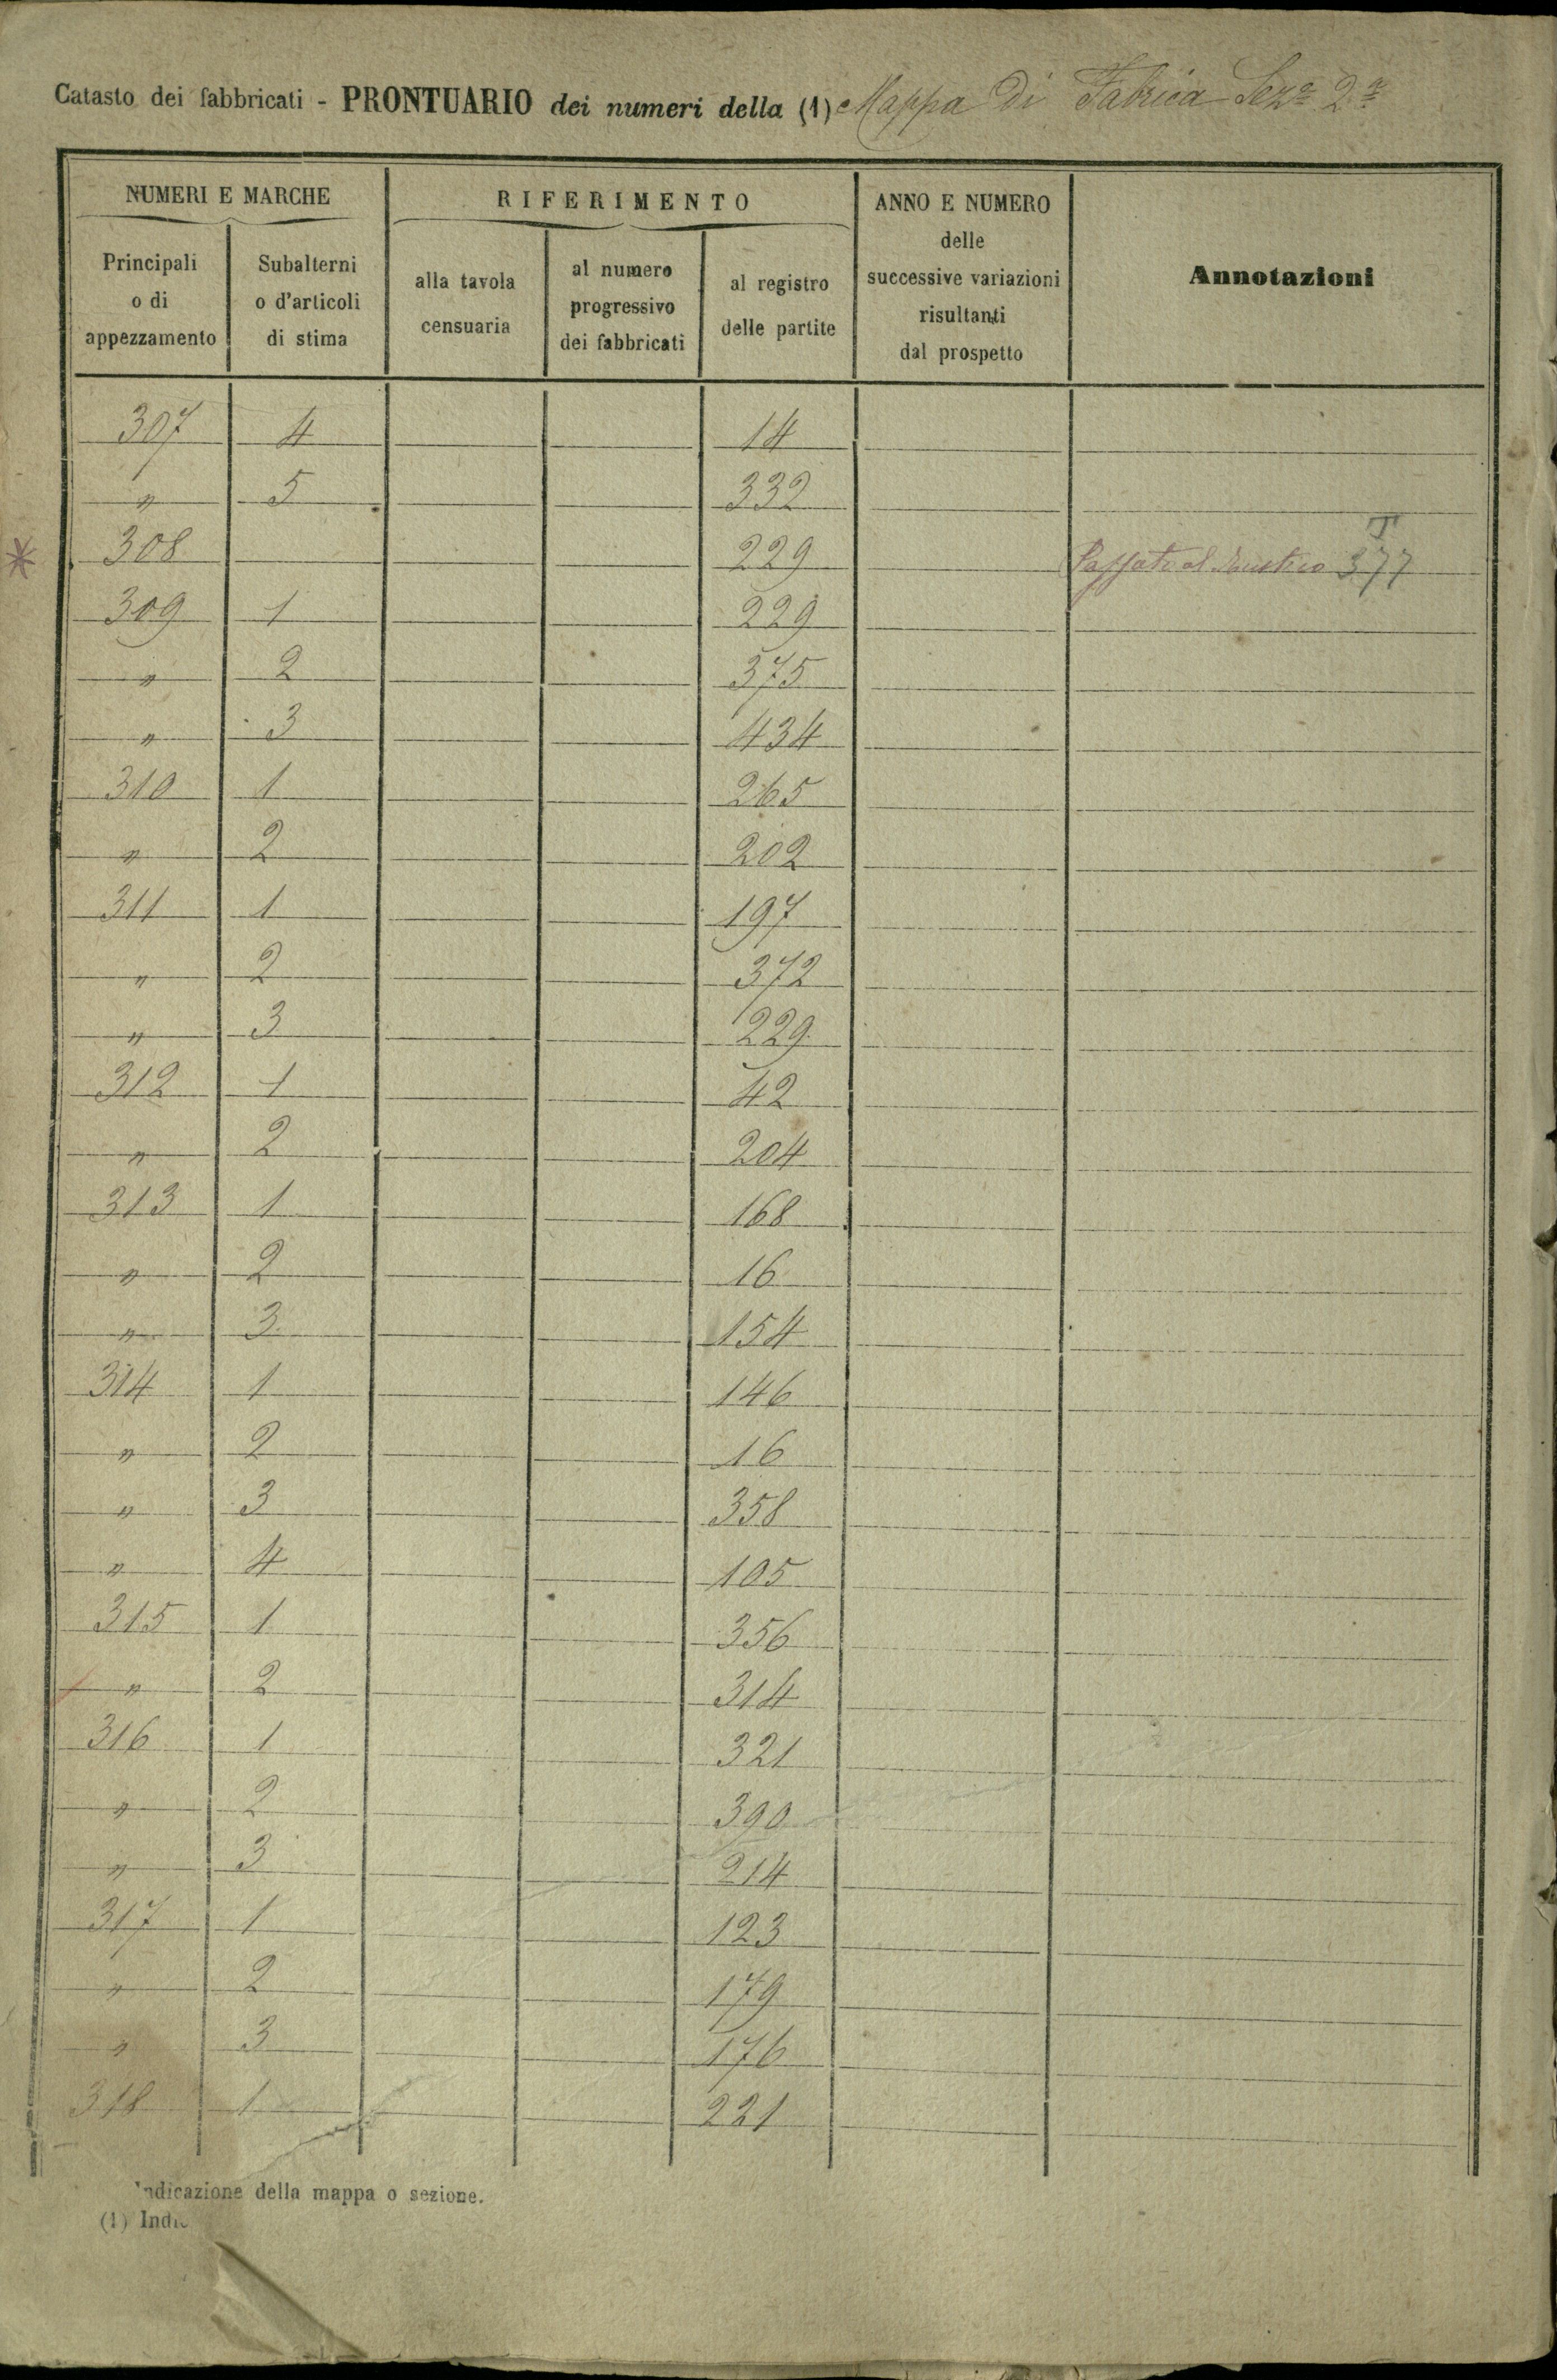 Catasto dei fabbricati - PRONTUARIO dei numeri della (1) Mappa di Fabrica Seza 2a
NUMERI E MARCHE
RIFERIMENTO
ANNO E NUMERO
delle
successive variazioni
risultanti
dal prospetto
Annotazioni
Principali
o di
appezzamento
Subalterni
o d'articoli
di stima
alla tavola
censuaria
al numero
progressivo
dei fabbricati
al registro
delle partite
307 4 14
" 5 332
308 229 Passato al Rustico 377 T
309 1 229
" 2 375
" 3 434
310 1 265
" 2 202
311 1 197
" 2 372
" 3 229
312 1 42
" 2 204
313 1 168
" 2 16
" 3 154
314 1 146
" 2 16
" 3 358
" 4 105
315 1 356
" 2 314
316 1 321
" 2 390
" 3 214
317 1 123
" 2 179
" 3 176
318 1 221
Indicazione della mappa o sezione.
(1) Indic